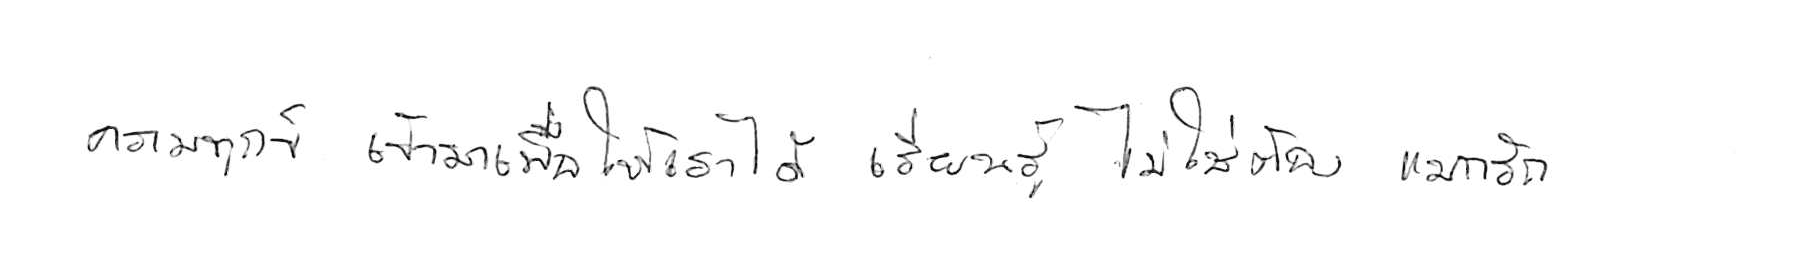 ความทุกข์ เข้ามาเพื่อให้เราได้ เรียนรู้ ไม่ใช่ต้อง แบกรัก